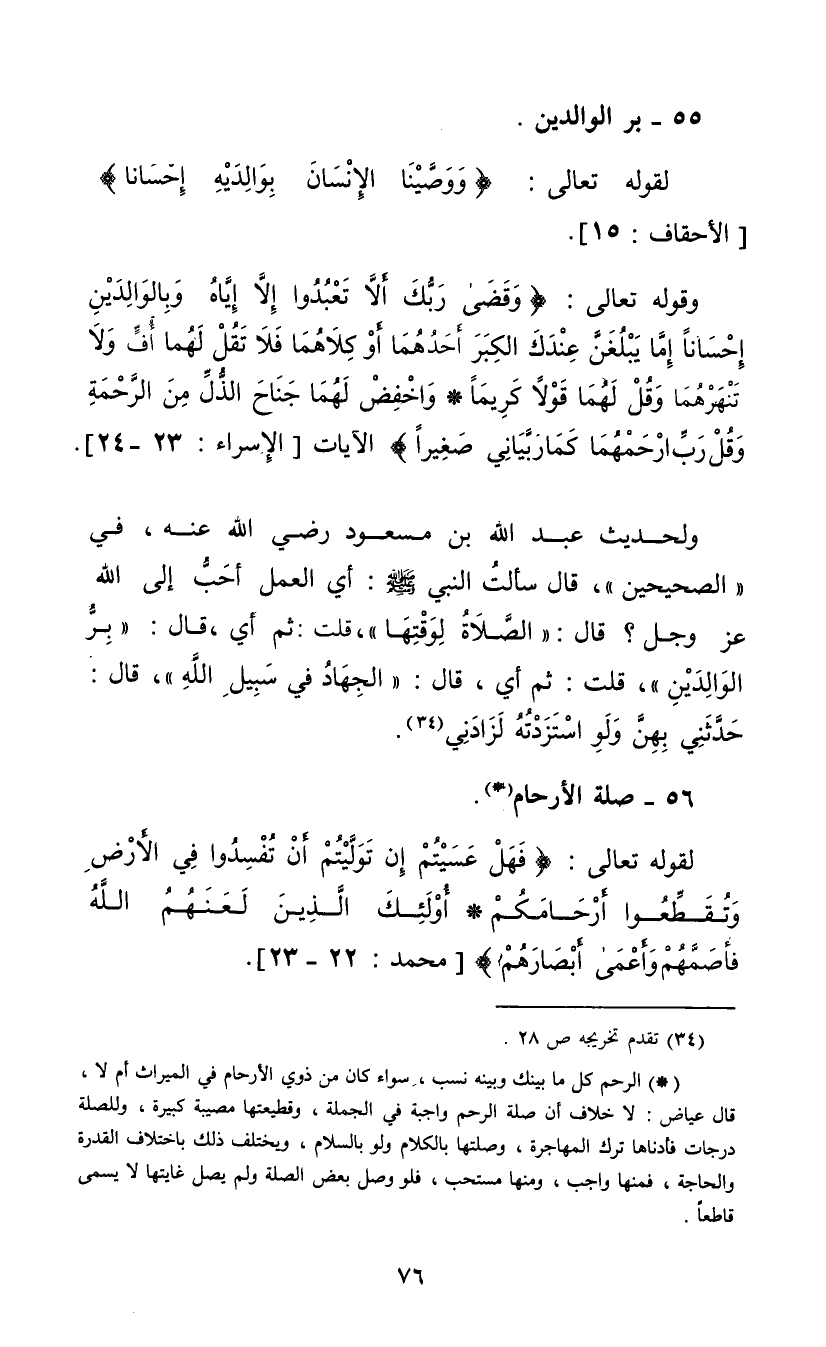 ٥٥ ـ بر الوالدين .
لقوله تعالى : ﴿ وَوَصَّيْنَا الإِنْسَانَ بِوَالِدَيْهِ إِحْسَانا ﴾
[ الأحقاف : ١٥].
وقوله تعالى : ﴿ وَقَضَىٰ رَبُّكَ أَلَّا تَعْبُدُوا إِلَّا إِيَّاهُ وَبِالوَالِدَيْنِ
إِحْسَاناً إِمَّا يَبْلُغَنَّ عِنْدَكَ الكِبَرَ أَحَدُهُمَا أَوْ كِلَاهُمَا فَلَا تَقُلْ لَهُما أُفٍّ وَلَا
تَنْهَرْهُمَا وَقُلْ لَهُمَا قَوْلًا كَرِيمَاً * وَاخْفِضْ لَهُمَا جَنَاحَ الذُّلِّ مِنَ الرَّحْمَةِ
وَقُلْ رَبِّ ارْحَمْهُمَا كَمَا رَبَّيَانِي صَغِيراً ﴾ الآيات [ الإسراء : ٢٣ ـ ٢٤].
ولحديث عبد الله بن مسعود رضي الله عنه ، في
« الصحيحين »، قال سألتُ النبي ﷺ : أي العمل أحَبُّ إلى الله
عز وجل ؟ قال :« الصَّلَاةُ لِوَقْتِهَا »،قلت :ثم أي ،قال : « بِرُّ
الوَالِدَيْنِ »، قلت : ثم أي ، قال : « الجِهَادُ في سَبِيلِ اللَّهِ »، قال :
حَدَّثَنِي بِهِنَّ وَلَوِ اسْتَزَدْتُهُ لَزَادَنِي(٣٤).
٥٦ ـ صلة الأرحام(*).
لقوله تعالى : ﴿ فَهَلْ عَسَيْتُمْ إِن تَوَلَّيْتُمْ أَنْ تُفْسِدُوا فِي الأَرْضِ
وَتُقَطِّعُوا أَرْحَامَكُمْ * أُوْلَئِكَ الَّذِينَ لَعَنَهُمُ اللَّهُ
فأَصَمَّهُمْ وَأَعْمَىٰ أَبْصَارَهُمْ ﴾ [ محمد : ٢٢ ـ ٢٣].
(٣٤) تقدم تخريجه ص ٢٨ .
(*) الرحم كل ما بينك وبينه نسب ، سواء كان من ذوي الأرحام في الميراث أم لا ،
قال عياض : لا خلاف أن صلة الرحم واجبة في الجملة ، وقطيعتها مصيبة كبيرة ، وللصلة
درجات فأدناها ترك المهاجرة ، وصلتها بالكلام ولو بالسلام ، ويختلف ذلك باختلاف القدرة
والحاجة ، فمنها واجب ، ومنها مستحب ، فلو وصل بعض الصلة ولم يصل غايتها لا يسمى
قاطعاً .
٧٦